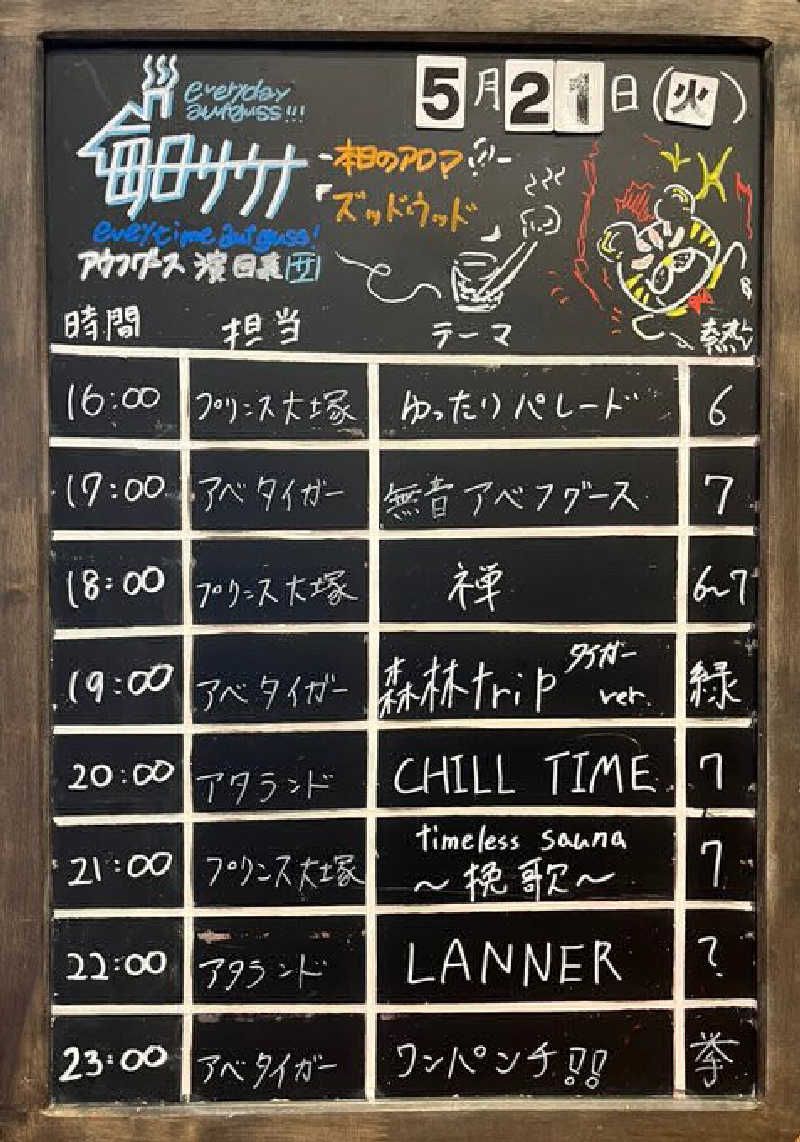 everyday
aufguss!!!
5月21日(火)
毎日サウナ
本日のアロマ
ズッドウッド
everytime aufguss!
アウフグース
時間 担当 テーマ 熱
16:00 プリンス大塚 ゆったりパレード 6
17:00 アベタイガー 無音アベフグース 7
18:00 プリンス大塚 禅 6〜7
19:00 アベタイガー 森林trip タイガーver. 緑
20:00 アタランド CHILL TIME 7
21:00 プリンス大塚 timeless sauna
〜挽歌〜 7
22:00 アタランド LANNER ?
23:00 アベタイガー ワンパンチ!! 拳